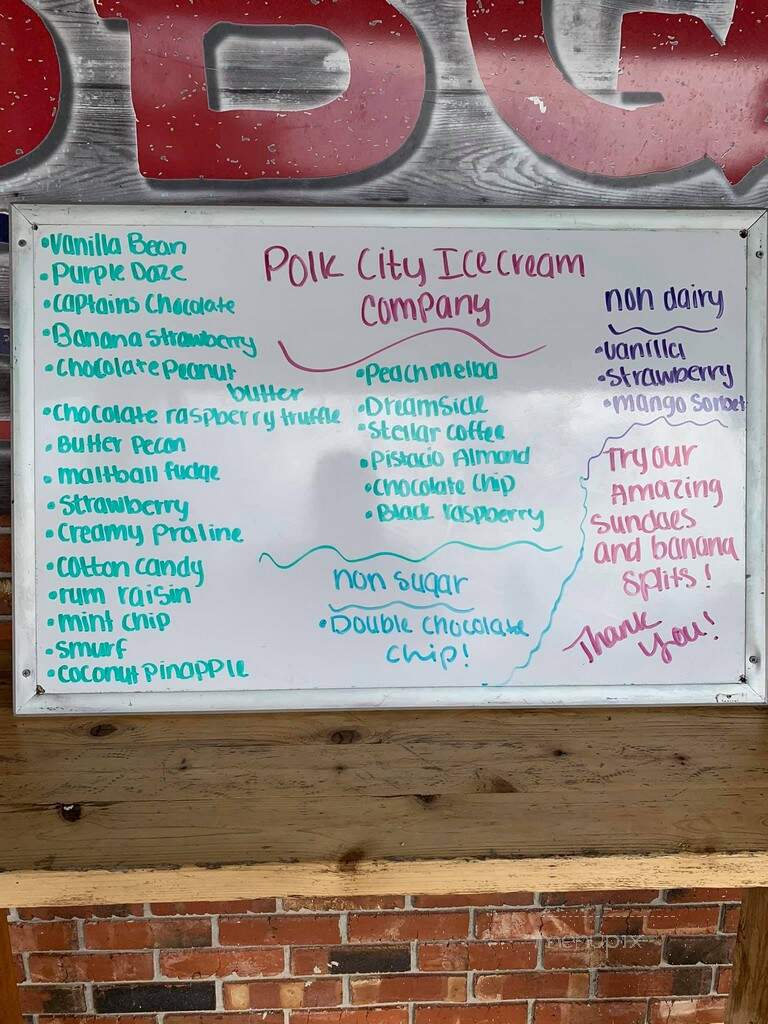 •Vanilla Bean
•Purple Daze
•Captains Chocolate
•Banana Strawberry
•Chocolate Peanut
butter
•Chocolate raspberry truffle
•Butter Pecan
•maltball fudge
•Strawberry
•Creamy Praline
•Cotton candy
•rum raisin
•mint chip
•smurf
•Coconut pinapple
Polk City Ice Cream
Company
•Peach melba
•Dreamsicle
•Stellar coffee
•Pistacio Almond
•Chocolate Chip
•Black raspberry
non sugar
•Double Chocolate
Chip!
non dairy
•Vanilla
•Strawberry
•Mango Sorbet
Try our
Amazing
Sundaes
and banana
splits!
Thank
you!
menupix